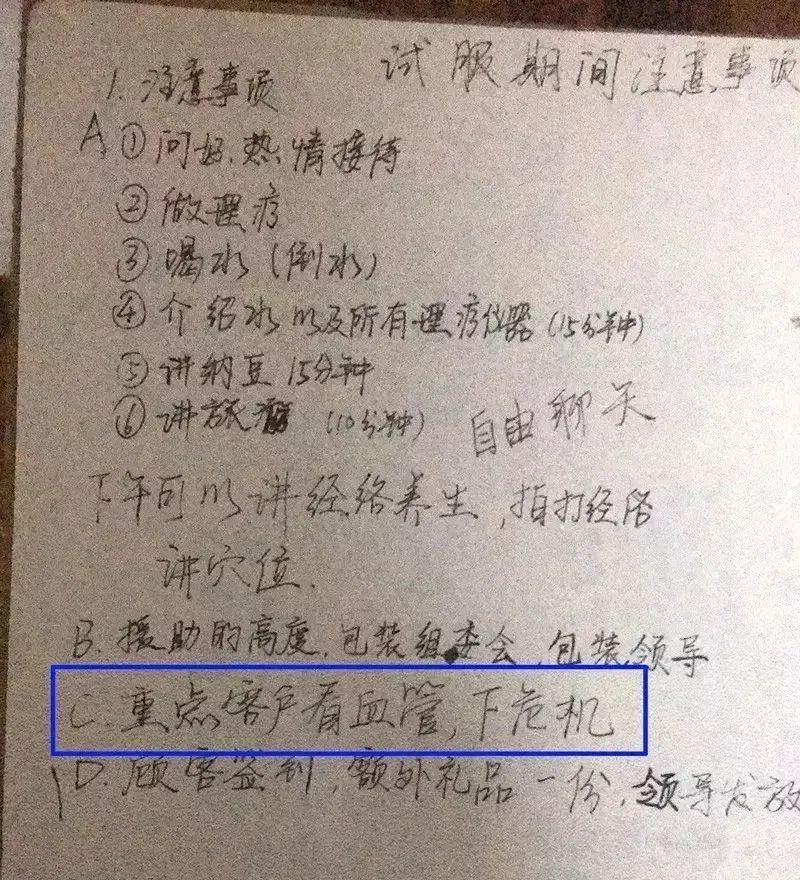 试服期间注意事项
1. 注意事项
A ①问好、热情接待
②做理疗
③喝水(倒水)
④介绍水以及所有理疗仪器(15分钟)
⑤讲纳豆15分钟
⑥讲旅游(10分钟) 自由聊天
下午可以讲经络养生,拍打经络
讲穴位.
B. 援助的高度,包装组委会,包装领导
C. 重点客户看血管,下危机
D. 顾客签到,额外礼品一份,领导发放